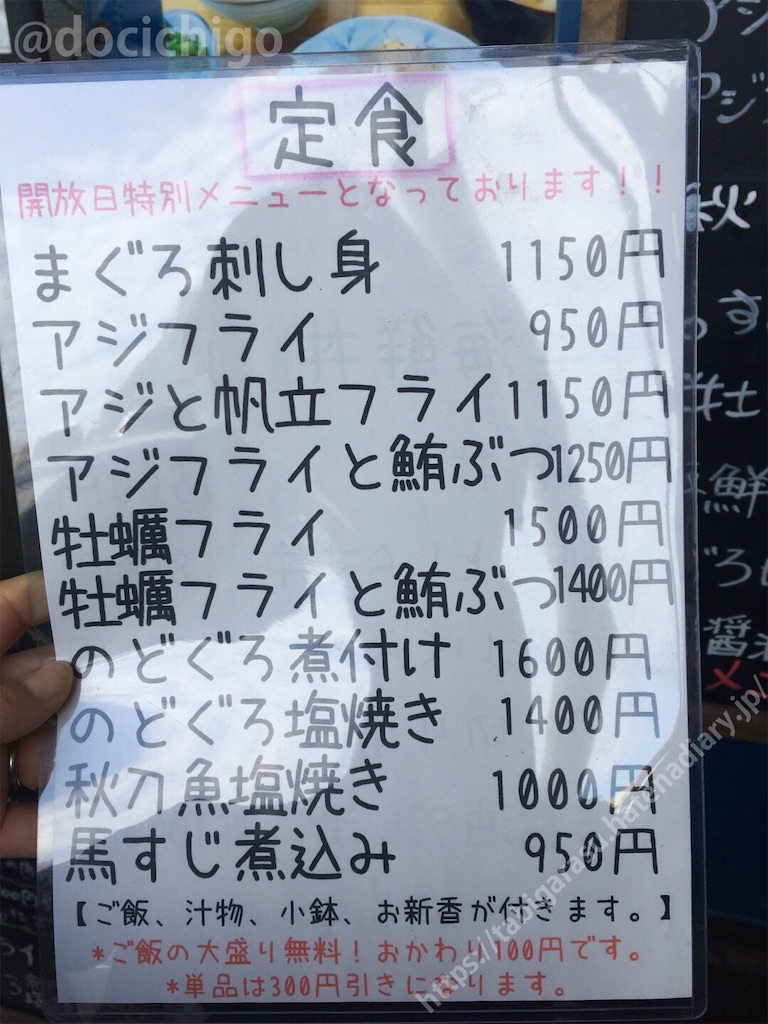 @docichigo
定食
開放日特別メニューとなっております！！
まぐろ刺し身 1150円
アジフライ 950円
アジと帆立フライ 1150円
アジフライと鮪ぶつ 1250円
牡蠣フライ 1500円
牡蠣フライと鮪ぶつ 1400円
のどぐろ煮付け 1600円
のどぐろ塩焼き 1400円
秋刀魚塩焼き 1000円
馬すじ煮込み 950円
【ご飯、汁物、小鉢、お新香が付きます。】
*ご飯の大盛り無料！おかわり100円です。
*単品は300円引きになります。